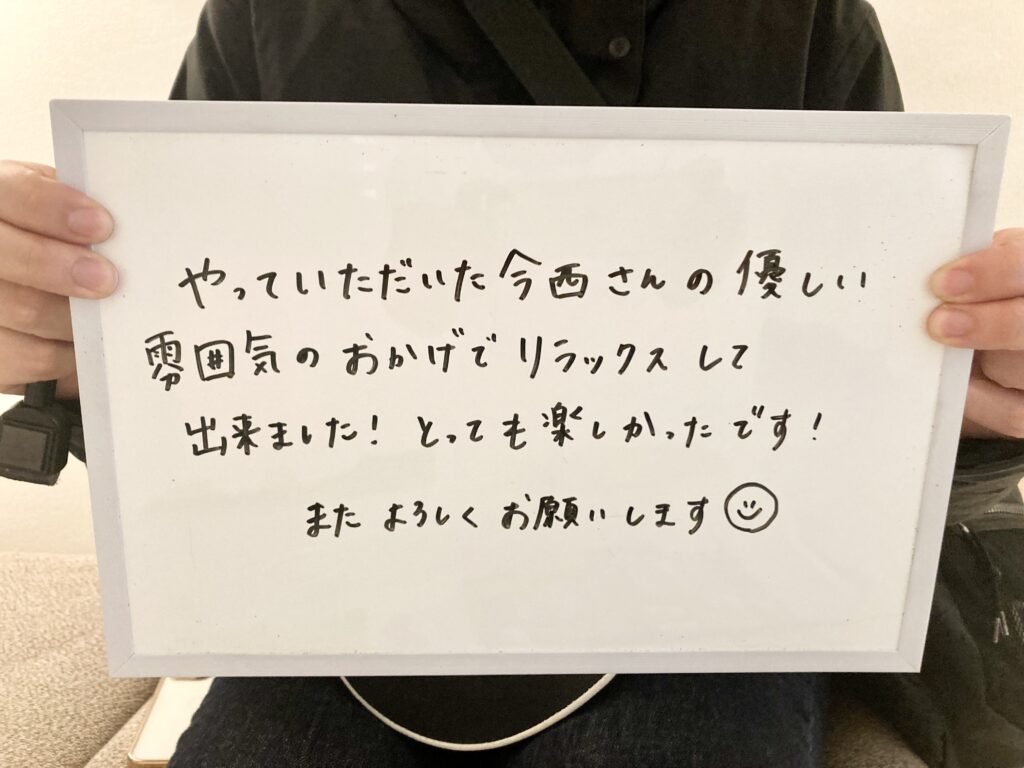 やっていただいた今西さんの優しい
雰囲気のおかげでリラックスして
出来ました！とっても楽しかったです！
またよろしくお願いします